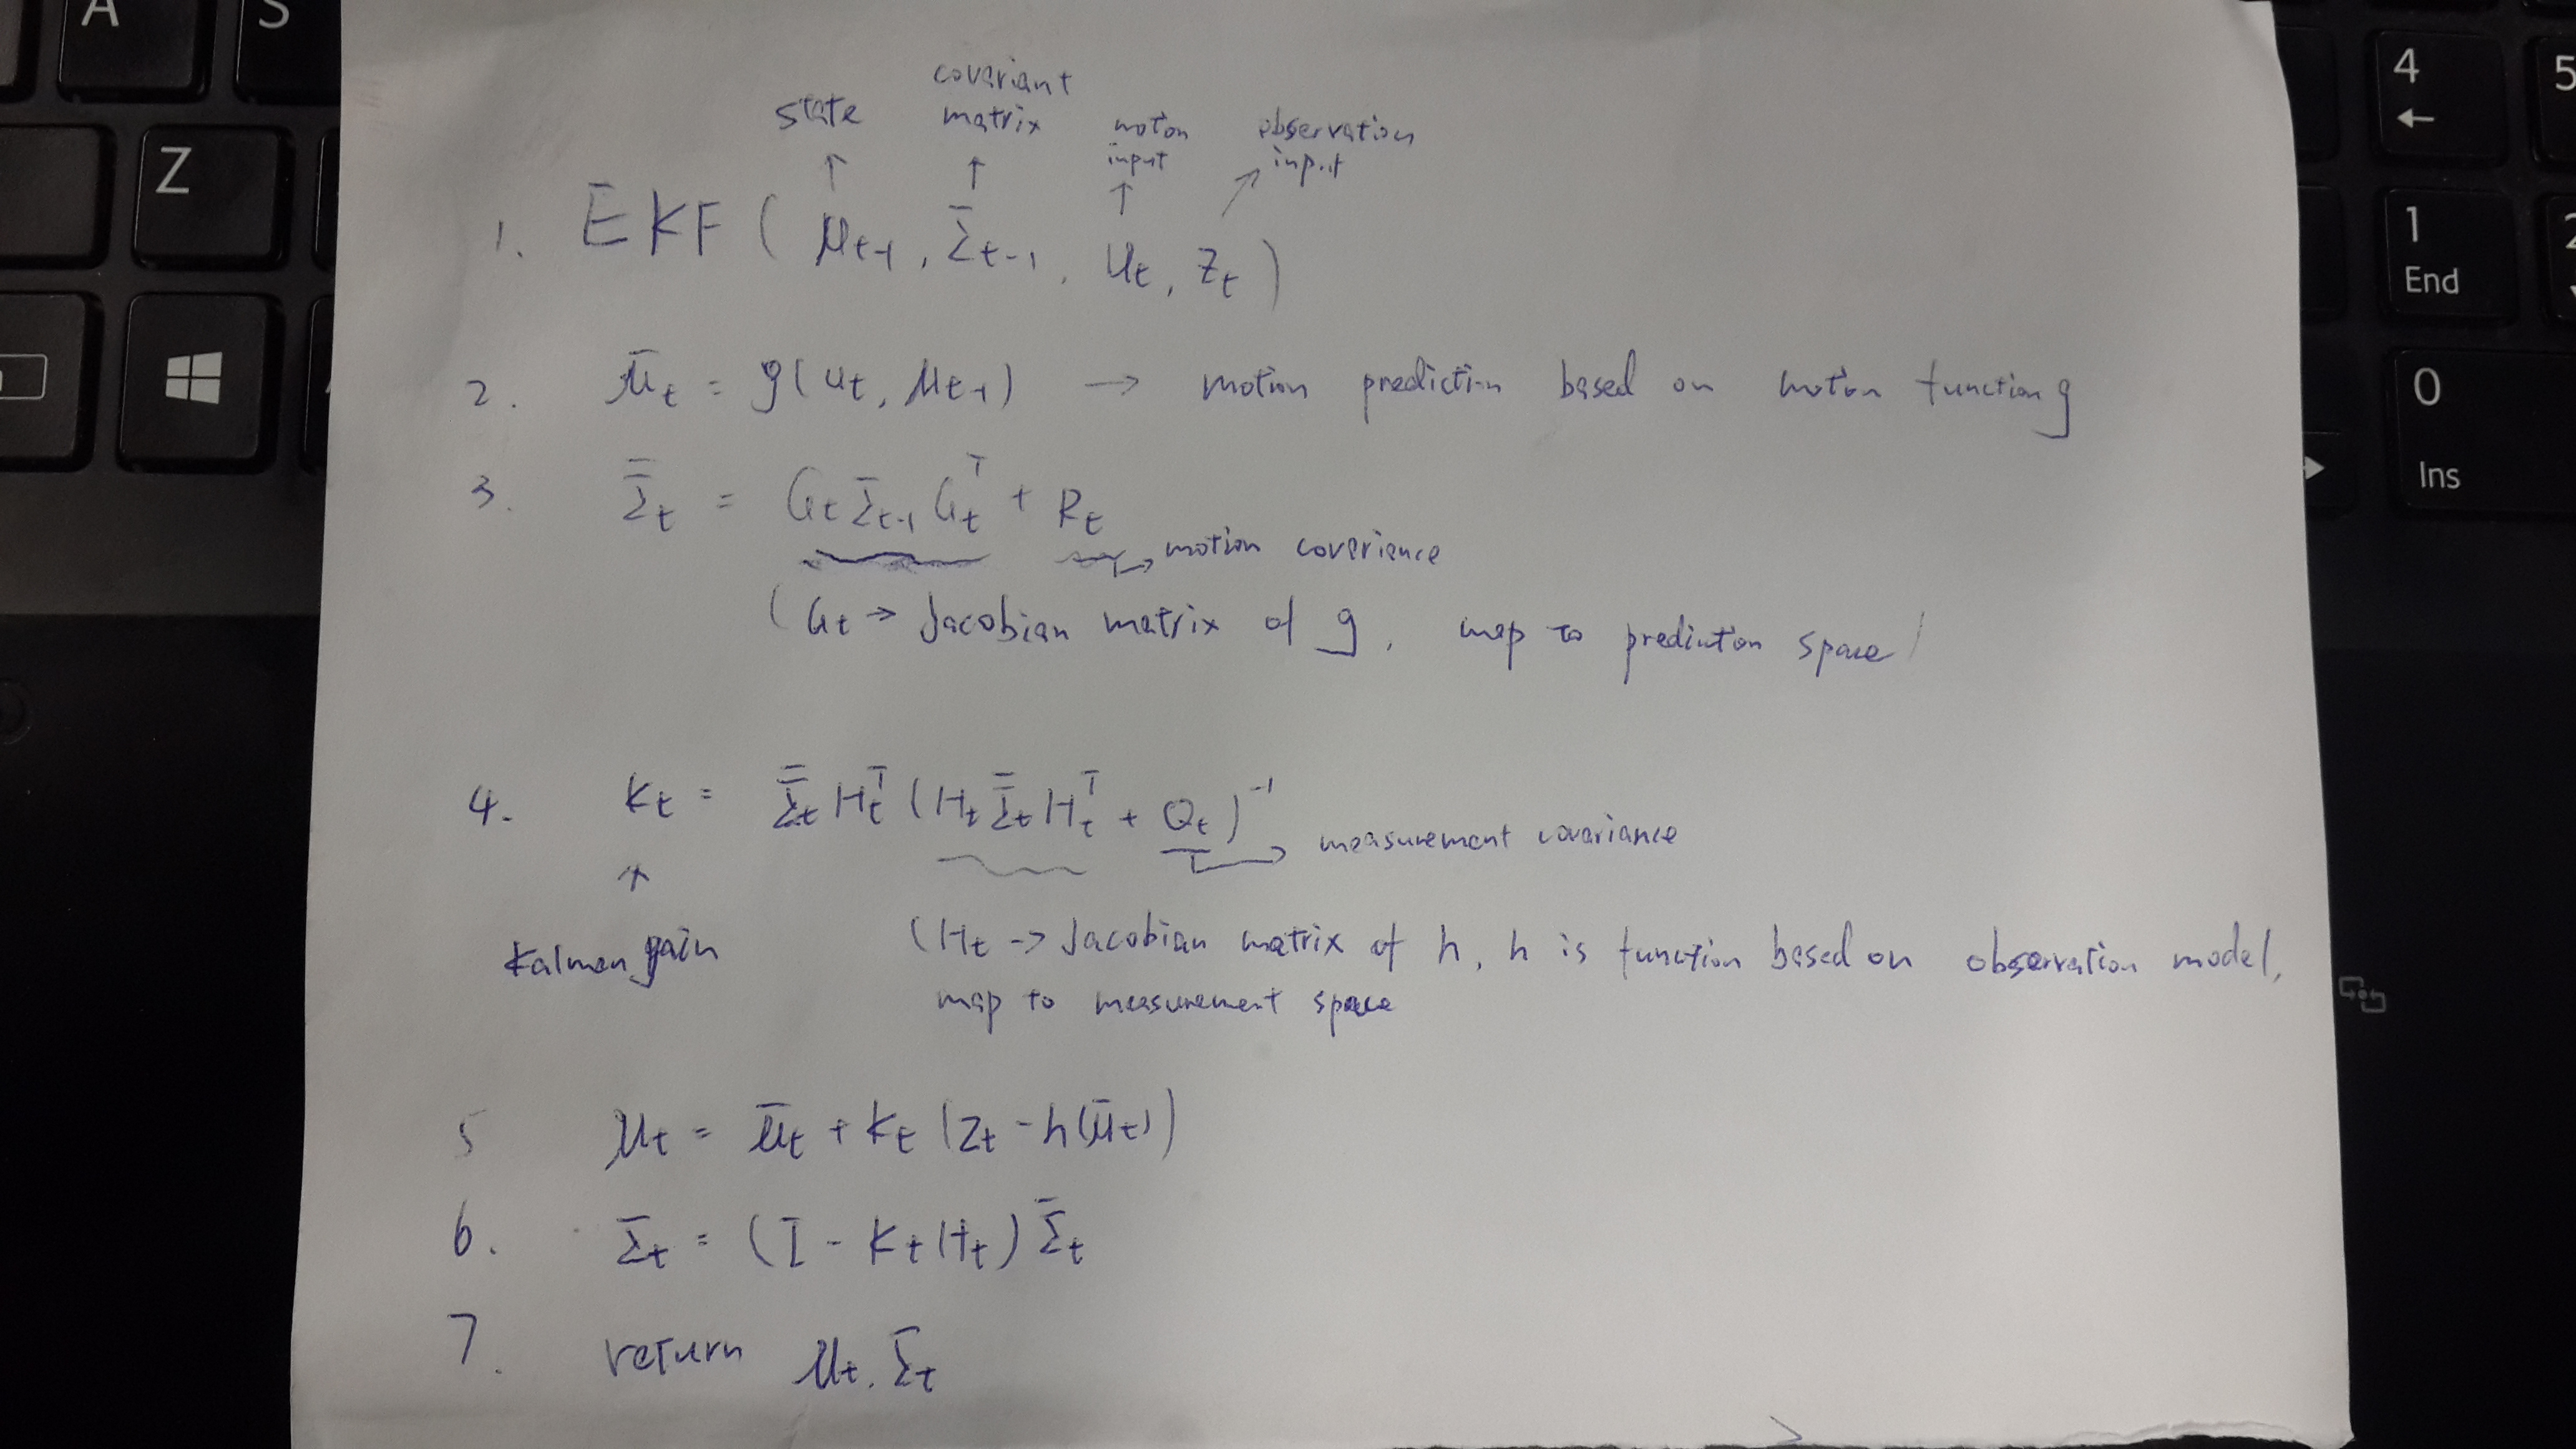 A S
Z
4
←
5
1
End
2
0
Ins
state covariant matrix moton input observation input
1. EKF ( μt-1, Σt-1, ut, Zt )
2. μ̄t = g(ut, μt-1) → motion prediction based on moton function g
3. Σ̄t = Gt Σt-1 Gtᵀ + Rt
→ motion covariance
( Gt → Jacobian matrix of g, map to prediction space )
4. Kt = Σ̄t Htᵀ (Ht Σ̄t Htᵀ + Qt)⁻¹
→ measurement covariance
↑
Kalman gain
(Ht -> Jacobian matrix of h, h is function based on observation model,
map to measurement space
5 μt = μ̄t + Kt (Zt - h(μ̄t))
6. Σt = (I - Kt Ht) Σ̄t
7. return μt, Σt